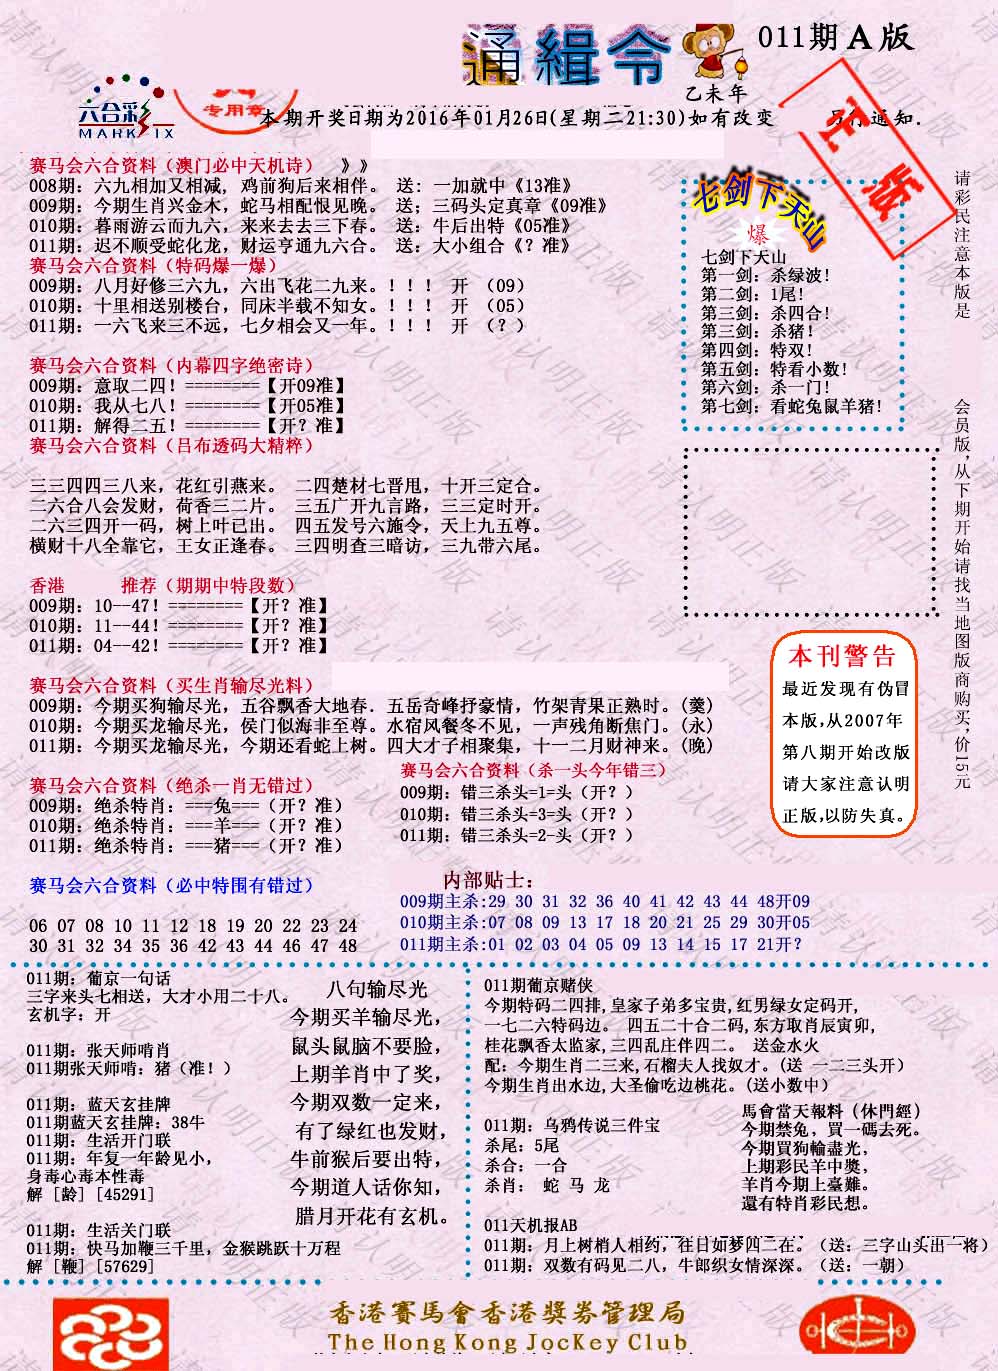 通緝令
011期A版
乙未年
六合彩
MARK SIX
专用章
本期开奖日期为2016年01月26日(星期二21:30)如有改变 另行通知.
正版
赛马会六合资料（澳门必中天机诗） 》》
008期：六九相加又相减, 鸡前狗后来相伴。 送: 一加就中《13准》
009期：今期生肖兴金木，蛇马相配恨见晚。 送；三码头定真章《09准》
010期：暮雨游云而九六，来来去去三下春。 送：牛后出特《05准》
011期：迟不顺受蛇化龙，财运亨通九六合。 送：大小组合《？准》
赛马会六合资料（特码爆一爆）
009期：八月好修三六九，六出飞花二九来。！！！ 开 （09）
010期：十里相送别楼台，同床半载不知女。！！！ 开 （05）
011期：一六飞来三不远，七夕相会又一年。！！！ 开 （？）
赛马会六合资料（内幕四字绝密诗）
009期：意取二四！========【开09准】
010期：我从七八！========【开05准】
011期：解得二五！========【开？准】
赛马会六合资料（吕布透码大精粹）
三三四四三八来，花红引燕来。 二四楚材七晋用，十开三定合。
二六合八会发财，荷香三二片。 三五广开九言路，三三定时开。
二六三四开一码，树上叶已出。 四五发号六施令，天上九五尊。
横财十八全靠它，王女正逢春。 三四明查三暗访，三九带六尾。
香港 推荐（期期中特段数）
009期：10--47！========【开？准】
010期：11--44！========【开？准】
011期：04--42！========【开？准】
赛马会六合资料（买生肖输尽光料）
009期：今期买狗输尽光，五谷飘香大地春．五岳奇峰抒豪情，竹架青果正熟时。(羹)
010期：今期买龙输尽光，侯门似海非至尊。水宿风餐冬不见，一声残角断焦门。(永)
011期：今期买龙输尽光，今期还看蛇上树。四大才子相聚集，十一二月财神来。(晚)
赛马会六合资料（绝杀一肖无错过）
009期：绝杀特肖：===兔===（开？准）
010期：绝杀特肖：===羊===（开？准）
011期：绝杀特肖：===猪===（开？准）
赛马会六合资料（杀一头今年错三）
009期：错三杀头=1=头（开？）
010期：错三杀头=3=头（开？）
011期：错三杀头=2-头（开？）
赛马会六合资料（必中特围有错过）
06 07 08 10 11 12 18 19 20 22 23 24
30 31 32 34 35 36 42 43 44 46 47 48
内部贴士：
009期主杀:29 30 31 32 36 40 41 42 43 44 48开09
010期主杀:07 08 09 13 17 18 20 21 25 29 30开05
011期主杀:01 02 03 04 05 09 13 14 15 17 21开？
七剑下天山
爆
七剑下天山
第一剑：杀绿波！
第二剑：1尾！
第三剑：杀四合！
第三剑：杀猪！
第四剑：特双！
第五剑：特看小数！
第六剑：杀一门！
第七剑：看蛇兔鼠羊猪！
请彩民注意本版是
会员版，从下期开始请找当地图版商购买，价15元
本刊警告
最近发现有伪冒
本版，从2007年
第八期开始改版
请大家注意认明
正版，以防失真。
011期：葡京一句话
三字来头七相送，大才小用二十八。
玄机字：开
011期：张天师啃肖
011期张天师啃：猪（准！）
011期：蓝天玄挂牌
011期蓝天玄挂牌：38牛
011期：生活开门联
011期：年复一年龄见小，
身毒心毒本性毒
解 [龄] [45291]
011期：生活关门联
011期：快马加鞭三千里，金猴跳跃十万程
解 [鞭] [57629]
八句输尽光
今期买羊输尽光，
鼠头鼠脑不要脸，
上期羊肖中了奖，
今期双数一定来，
有了绿红也发财，
牛前猴后要出特，
今期道人话你知，
腊月开花有玄机。
011期葡京赌侠
今期特码二四排, 皇家子弟多宝贵, 红男绿女定码开,
一七二六特码边。 四五二十合二码, 东方取肖辰寅卯,
桂花飘香太监家, 三四乱庄伴四二。 送金水火
配：今期生肖二三来, 石榴夫人找奴才。(送 一二三头开）
今期生肖出水边, 大圣偷吃边桃花。(送小数中）
011期：乌鸦传说三件宝
杀尾：5尾
杀合：一合
杀肖： 蛇 马 龙
馬會當天報料（休門經）
今期禁兔，買一碼去死。
今期買狗輸盡光，
上期彩民羊中獎，
羊肖今期上臺難。
還有特肖彩民想。
011天机报AB
011期：月上树梢人相约，往日如梦四二在。（送：三字山头出一将）
011期：双数有码见二八，牛郎织女情深深。（送：一朝）
香港賽馬會香港獎券管理局
The Hong Kong JocKey Club
请认明正版